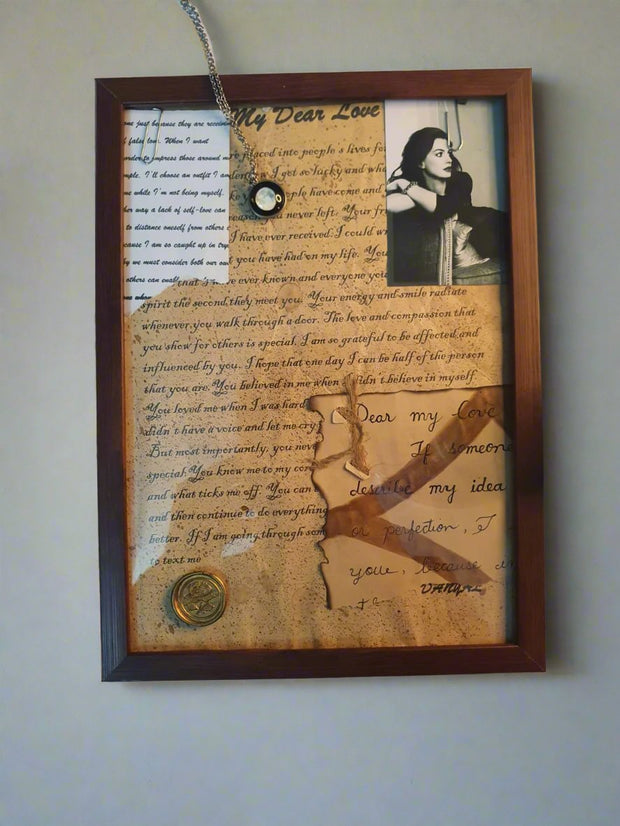 My Dear Love
one just because they are receiving
false love. When I want
order to impress those around me
I'll choose an outfit I
me while I'm not being myself.
way a lack of self-love can
to distance oneself from others
cause I am so caught up in
we must consider both our
others can
placed into people's lives for
I got so lucky and
people have come and
you never left. Your
I have ever received. I could
you have had on my life. You
that's ever known and everyone you
spirit the second they meet you. Your energy and smile radiate
whenever you walk through a door. The love and compassion that
you show for others is special. I am so grateful to be affected and
influenced by you. I hope that one day I can be half of the person
that you are. You believed in me when I didn't believe in myself.
You loved me when I was hard
didn't have a voice and let me cry
But most importantly, you
special. You know me to my
and what ticks me off. You can
and then continue to do everything
better. If I am going through
to text me
Dear my Love
If someone
describe my idea
or perfection, I
you, because